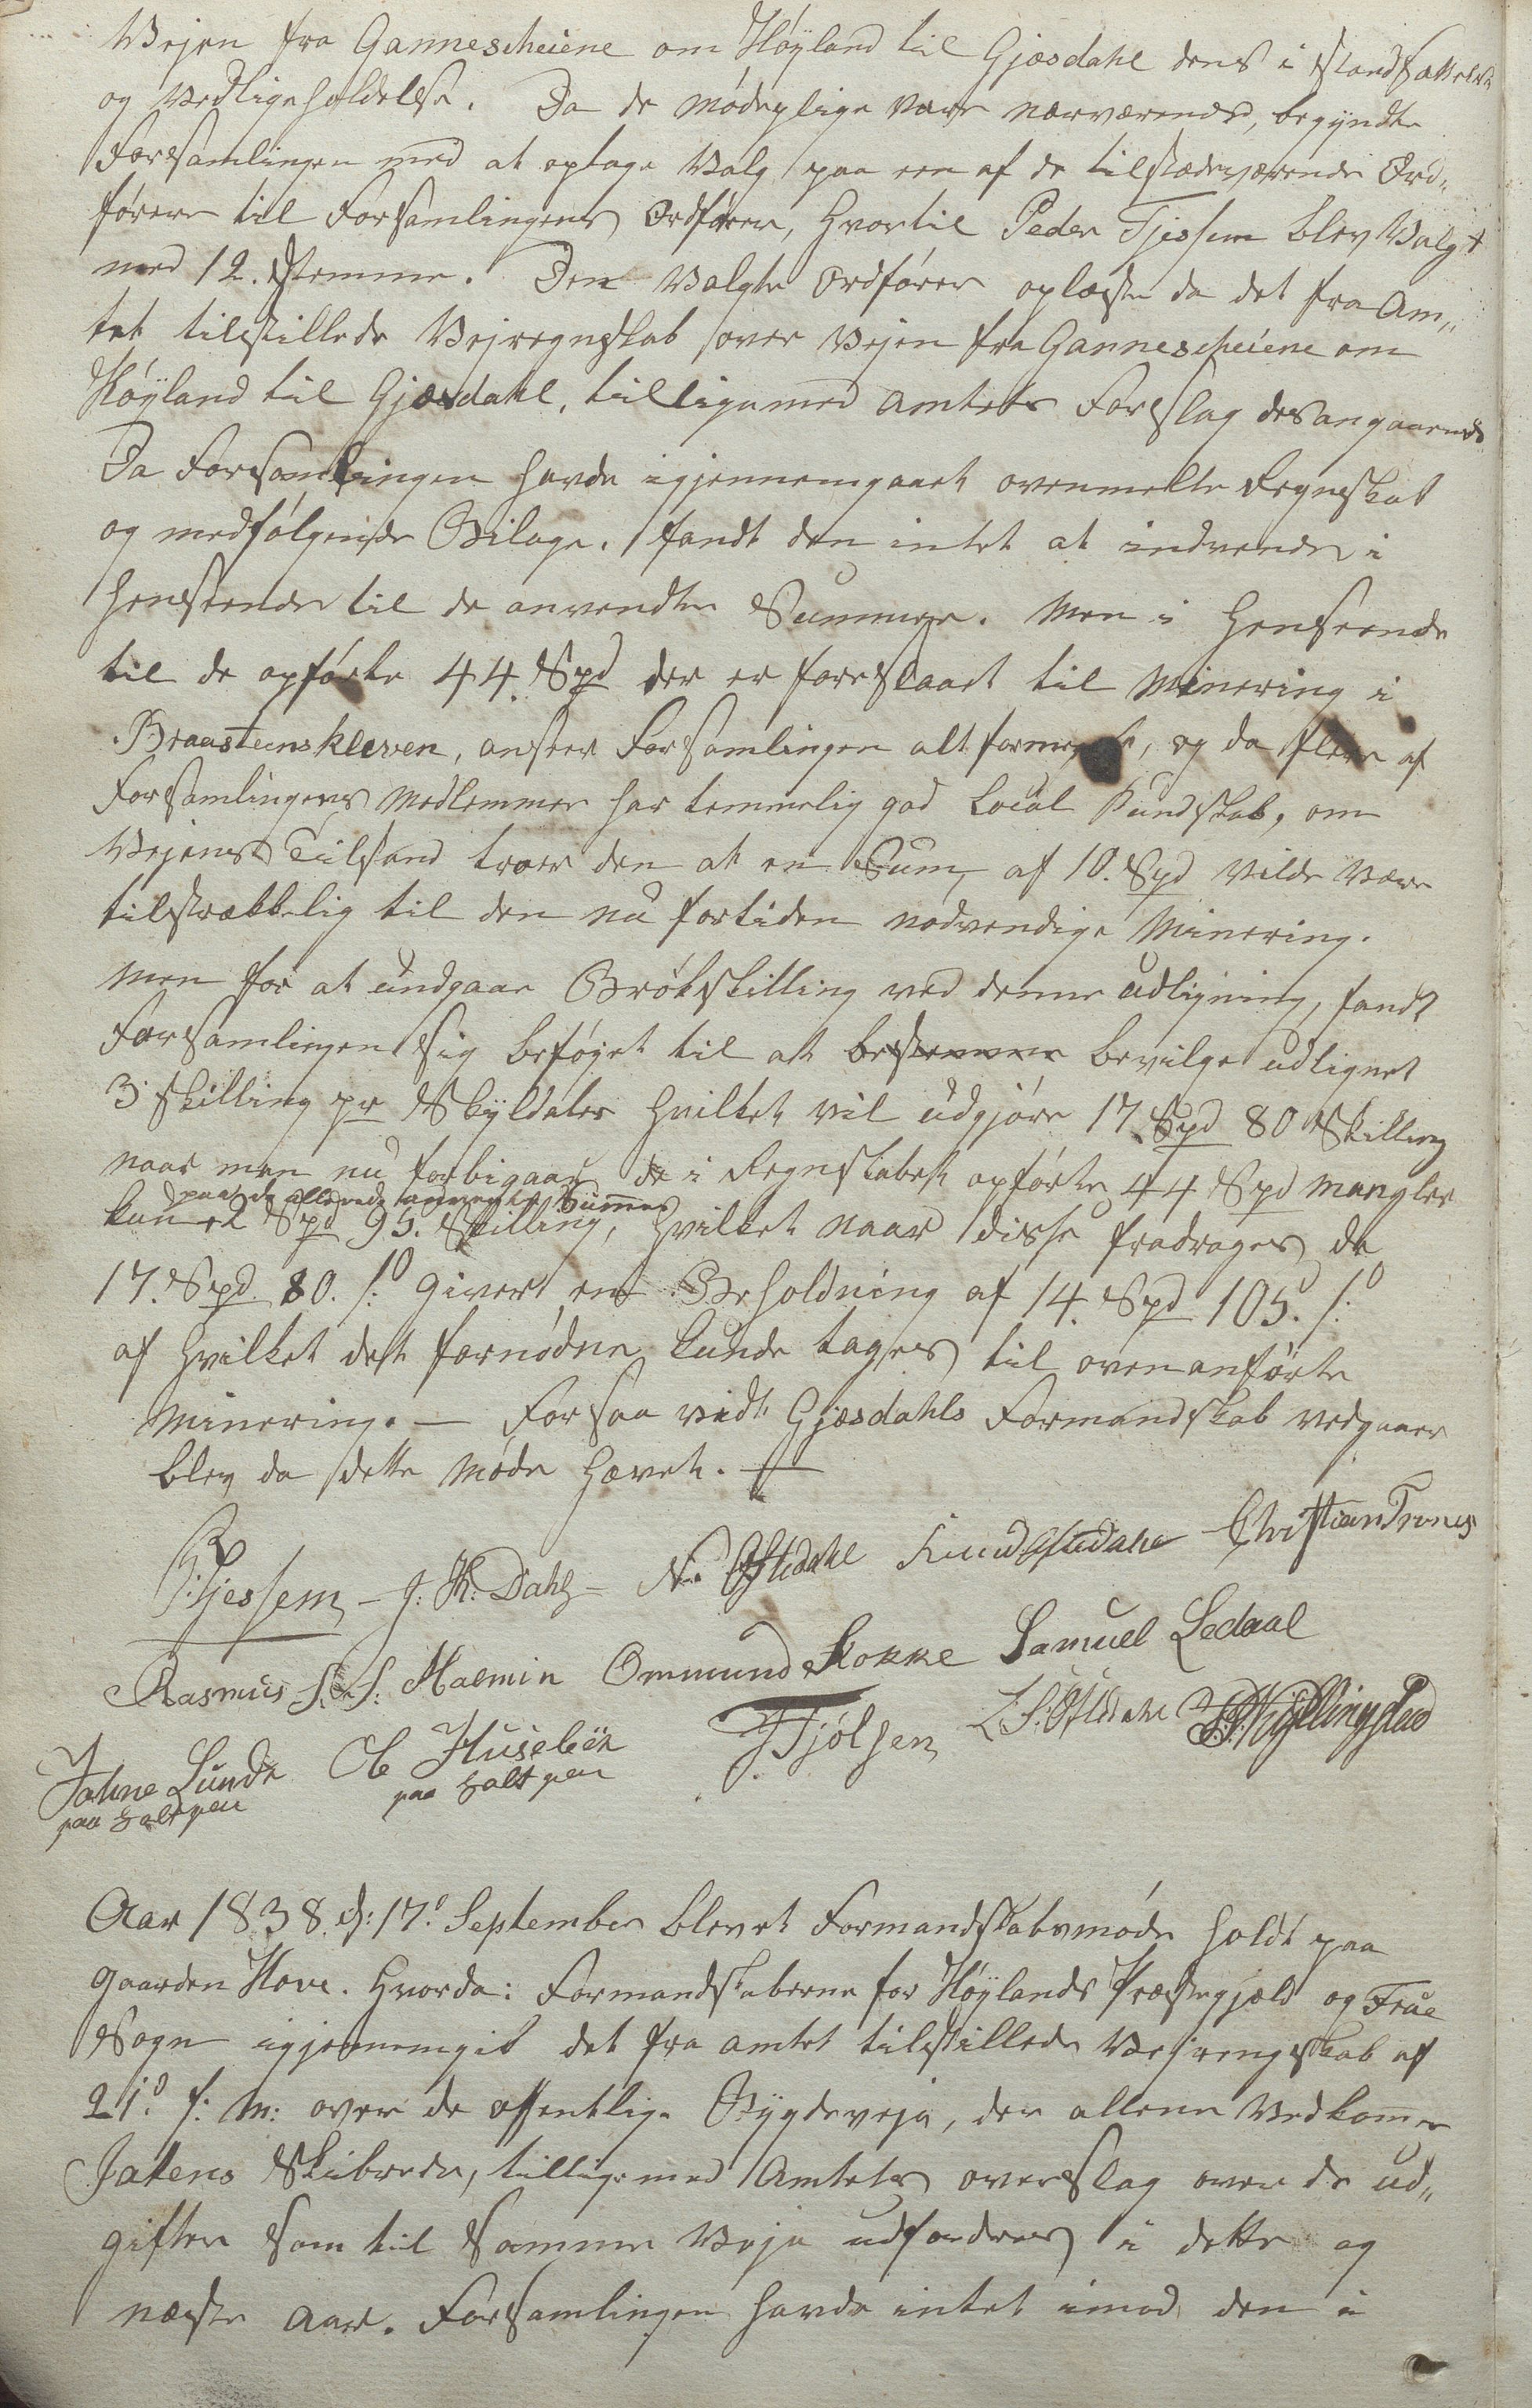 Vejen fra Gannescheiene om Höÿland til Gjæsdahl dens i Standsættelse
og Vedligeholdelse. Da de mödeplige vare nærværende, begÿndte
Forsamlingen med at optage Valg paa een af de tilstædeværende Ord„
förere til Forsamlingens Ordförer, hvortil Peder Tjessem blev Valgt
med 12. Stemmer. Den Valgte Ordförer oplæste da det fra Am„
tet tilstillede Vejregnskab over Vejen fra Gannescheiene om
Höÿland til Gjæsdahl, tilligemed Amtets Forslag desangaaende
Da Forsamlingen havde igjennemgaaet ovenmelte Regnskab
og medfölgende Bilage, fandt den intet at indvende i
henseende til de anvendte Summer. Men i henseende
til de opförte 44. Spd der er foreslaaet til Minering i
Braasteenskleven, anseer Forsamlingen alt formeget, og da flere af
Forsamlingens Medlemmer har temmelig god Local Kundskab, om
Vejens Tilstand troer den at en Sum, af 10. Spd vilde være
tilstrækkelig til den nu fortiden nödvendige Minering.
Men for at undgaae Brökskilling ved denne udligning, fandt
Forsamlingen sig beföget til at bestemme bevilge udlignet
3 Skilling pr Skÿldaler hvilket vil udgjöre 17 Spd 80 Skilling
naar man nu forbigaar de i Regnskabet opförte 44 Spd mangler
paa de allerede anvendte Summer
kun 2 Spd 95. Skilling, hvilket naar disse fradrages de
17. Spd. 80. s: giver en Beholdning af 14. Spd 105. s:
af hvilket det fornödne kunde tages til ovenanförte
Minering. — Forsaavidt Gjæsdahls Formandskab vedgaaer
blev da dette Möde hævet. —
P: Tjessem – J: K: Dahl – N. Oftedahl Knud Oftedahl Christian Trones
Rasmus S: S: Malmin Ommund Skokke Samuel Ledaal
Jahne Lunde Ole Husebÿe J Tjölsen L S: Oftedahl
paa holt pen paa holt pen
Aar 1838. d: 17.º September blev et Formandskabsmöde holdt paa
Gaarden Hove. Hvorda: Formandskaberne for Höÿlands Præstegjæld og Frue
Sogn igjennemgik det fra Amtet tilstillede Vejrengskab af
21.º f: M: over de offentlige Bÿgdeveje, der allene Vedkommer
Jatens Skibrede, tilligemed Amtets overslag over de ud„
gifter som til Samme Veje udfordres i dette og
næste Aar. Forsamlingen havde intet imod den i